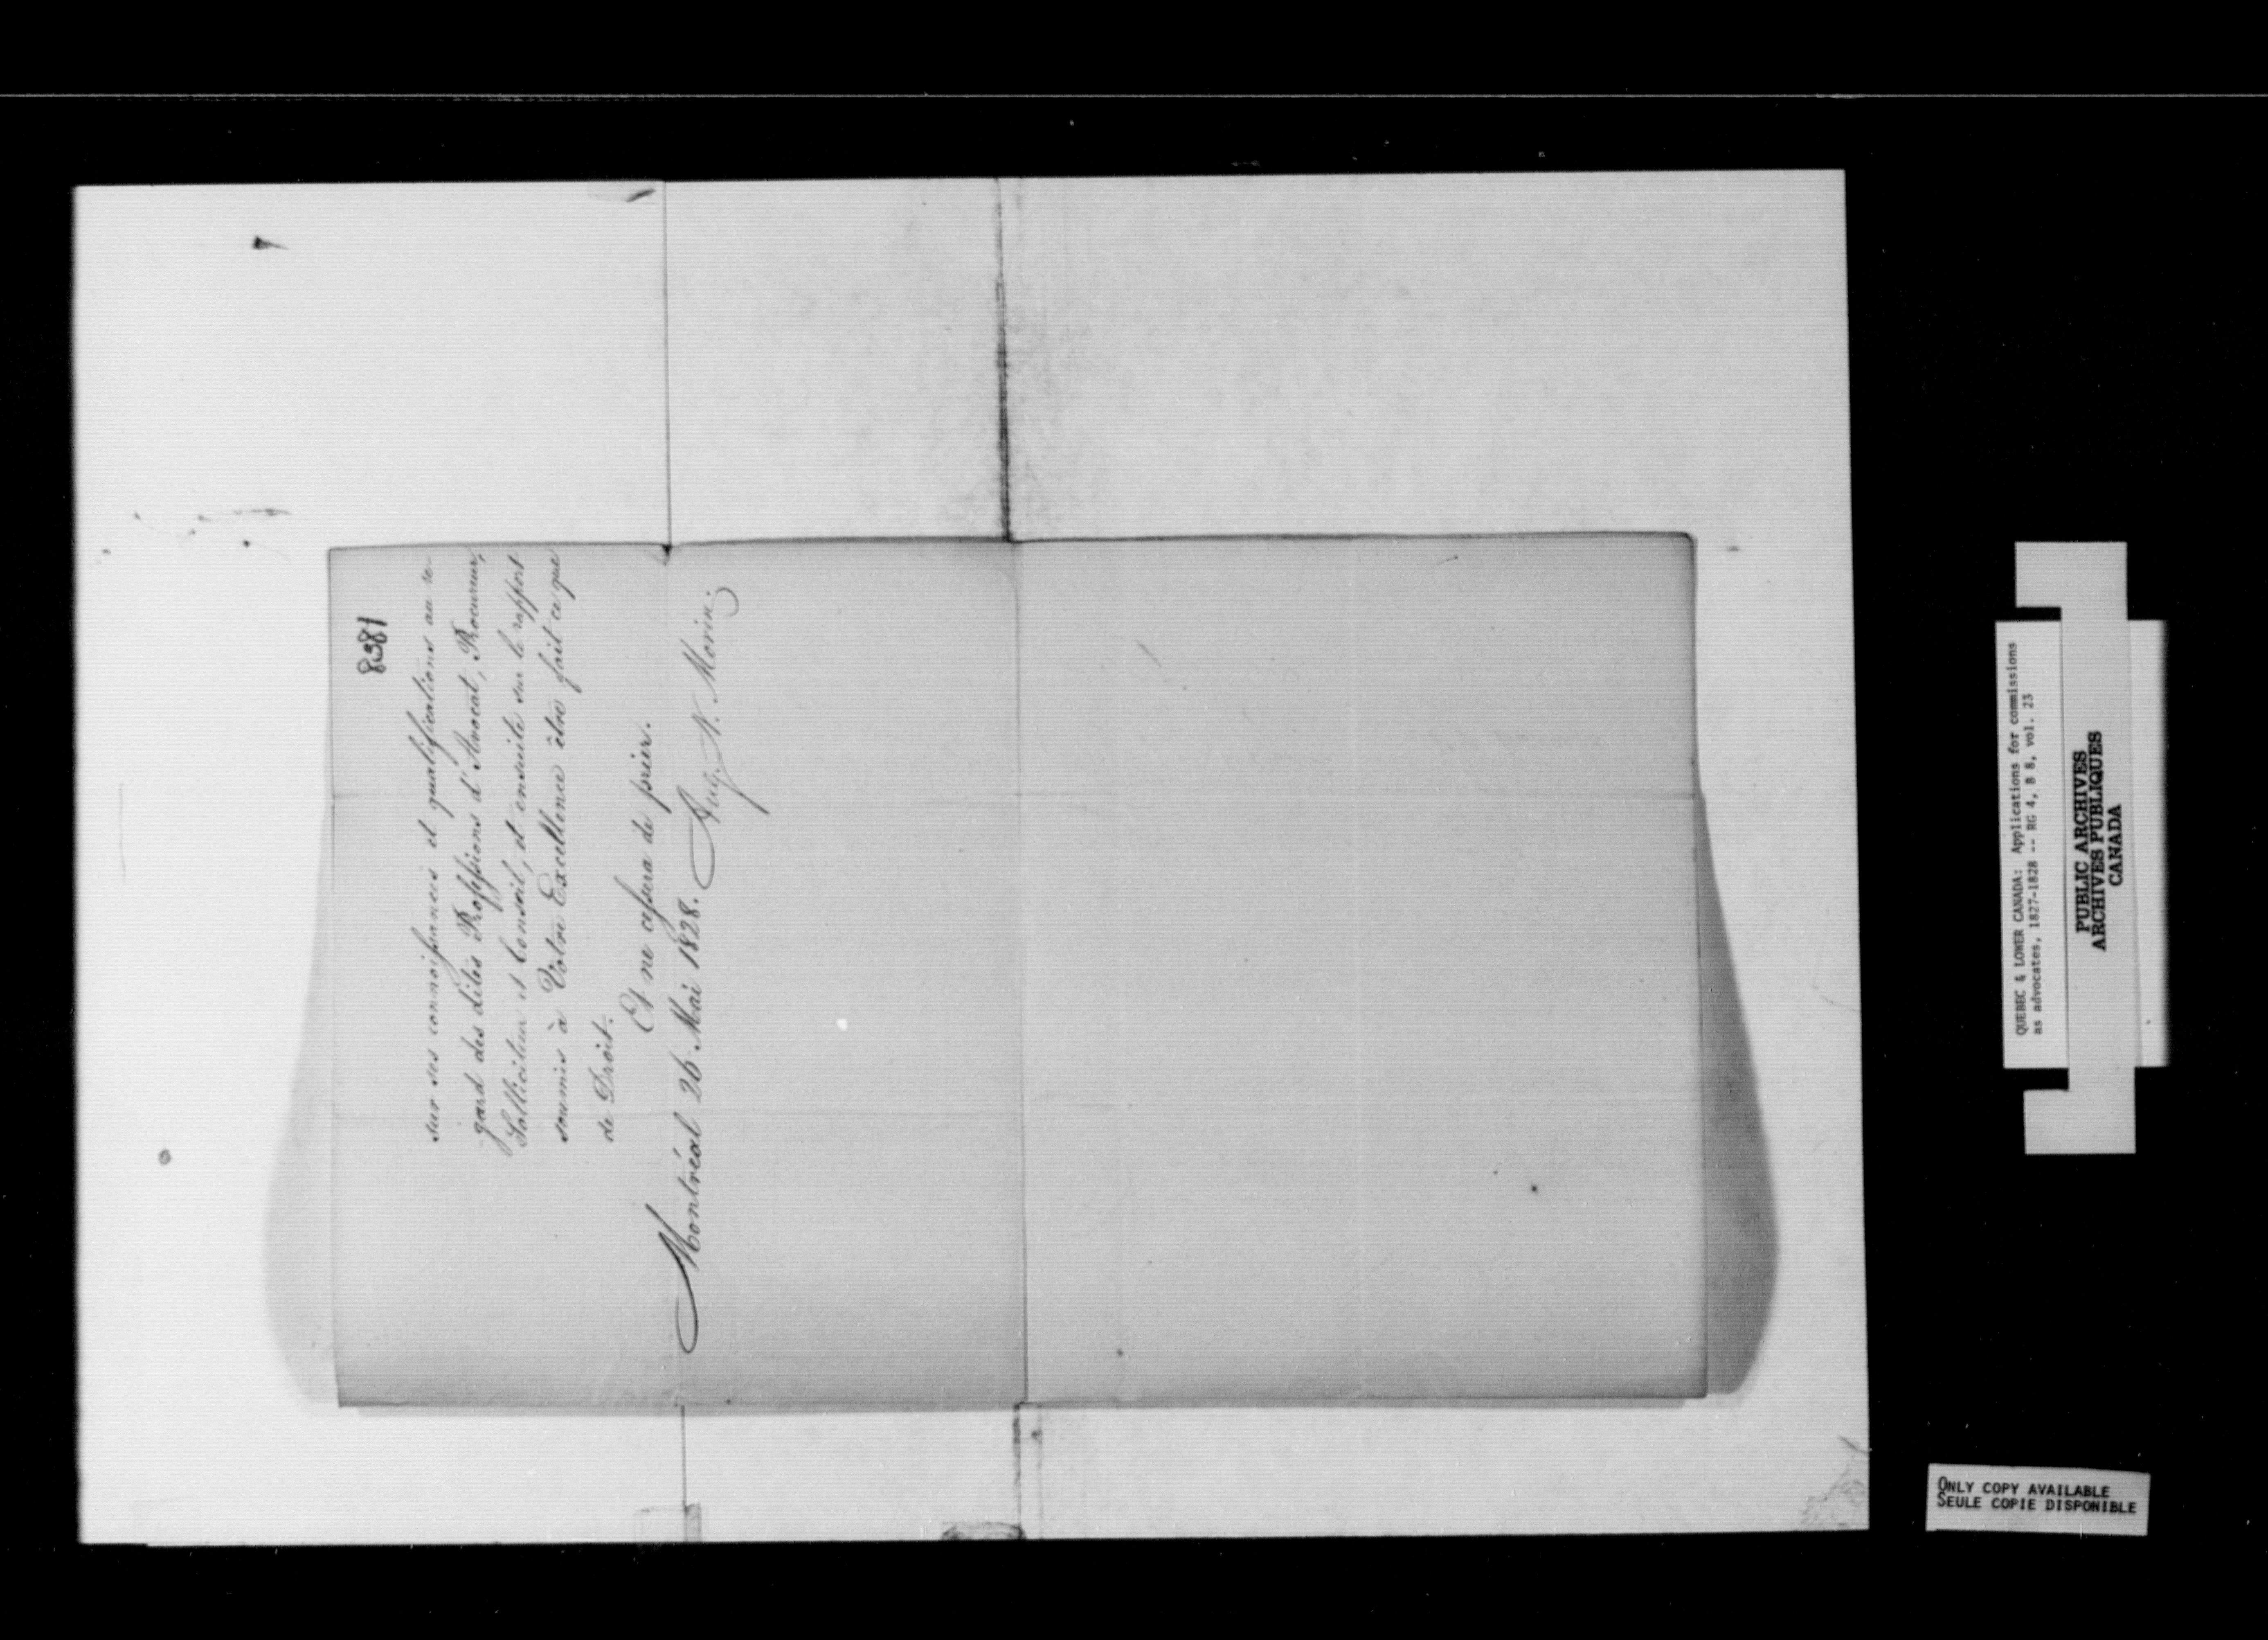 8381
sur ses connoissances et qualifications au re-
gard des dites Professions d'Avocat, Procureur,
Solliciteur et Conseil, et ensuite sur le rapport
soumis à Votre Excellence être fait ce que
de Droit.
Et ne cessera de prier.
Montréal 26 Mai 1828. Aug. N. Morin.
QUEBEC & LOWER CANADA: Applications for commissions
as advocates, 1827-1828 -- RG 4, B 8, vol. 23
PUBLIC ARCHIVES
ARCHIVES PUBLIQUES
CANADA
ONLY COPY AVAILABLE
SEULE COPIE DISPONIBLE